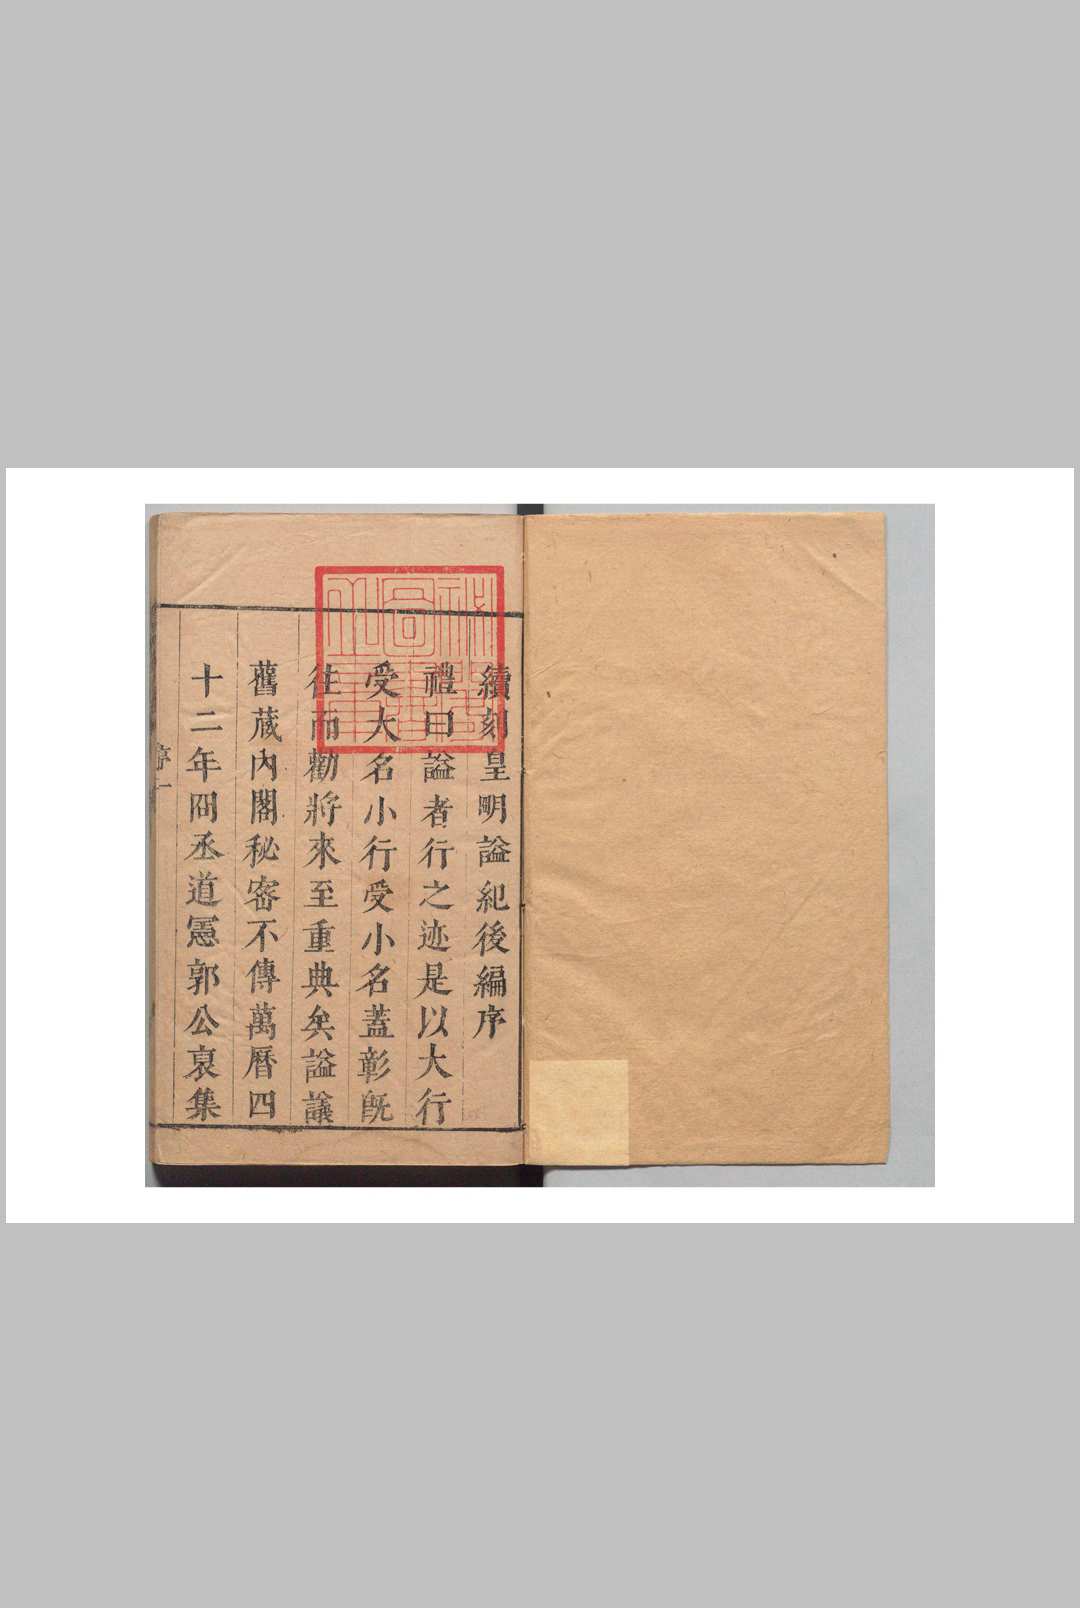 續刻皇明謚紀後編序
禮曰謚者行之迹是以大行
受大名小行受小名蓋彰旣
往而勸將來至重典矣謚議
舊蔵內閣秘密不傳萬曆四
十二年冏丞道憲郭公裒集
序 一